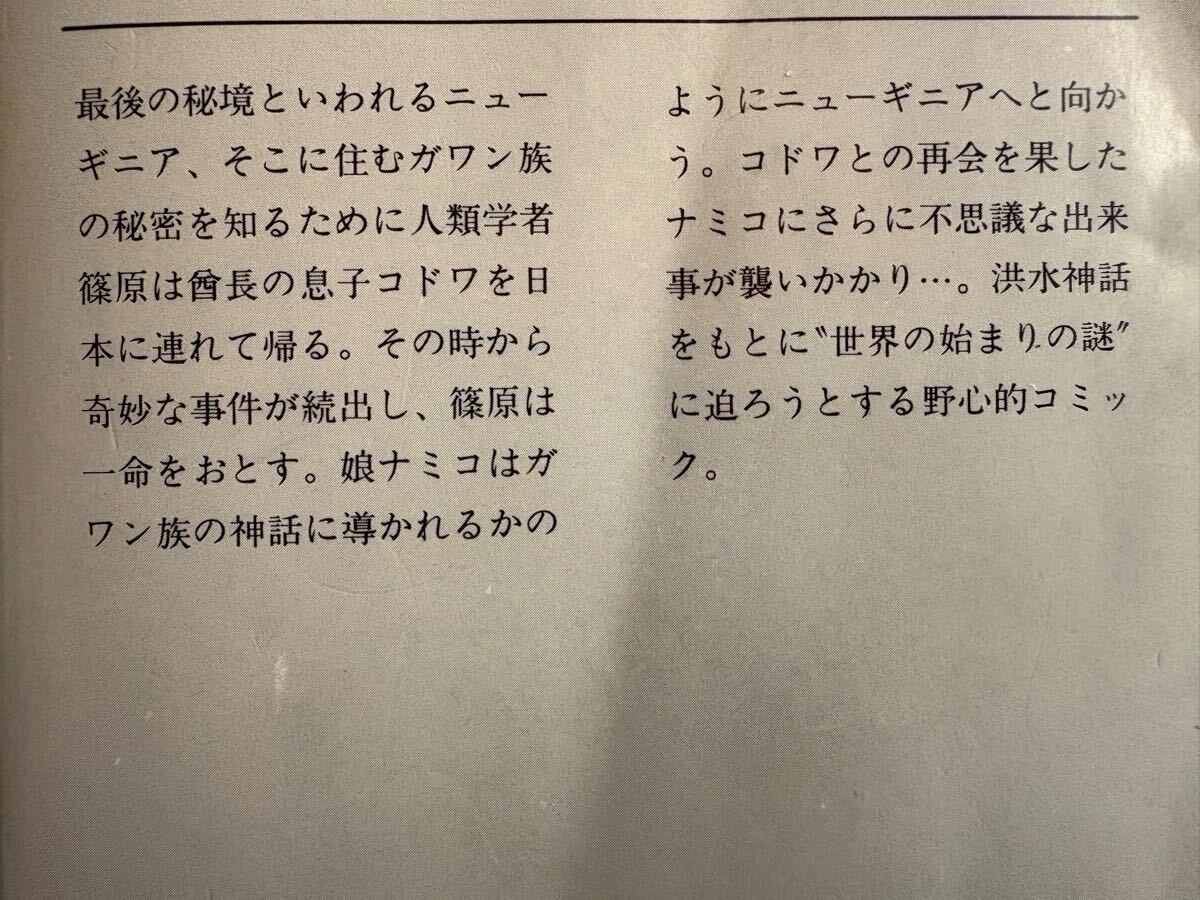 最後の秘境といわれるニュー
ギニア、そこに住むガワン族
の秘密を知るために人類学者
篠原は酋長の息子コドワを日
本に連れて帰る。その時から
奇妙な事件が続出し、篠原は
一命をおとす。娘ナミコはガ
ワン族の神話に導かれるかの
ようにニューギニアへと向か
う。コドワとの再会を果した
ナミコにさらに不思議な出来
事が襲いかかり…。洪水神話
をもとに〝世界の始まりの謎〞
に迫ろうとする野心的コミッ
ク。